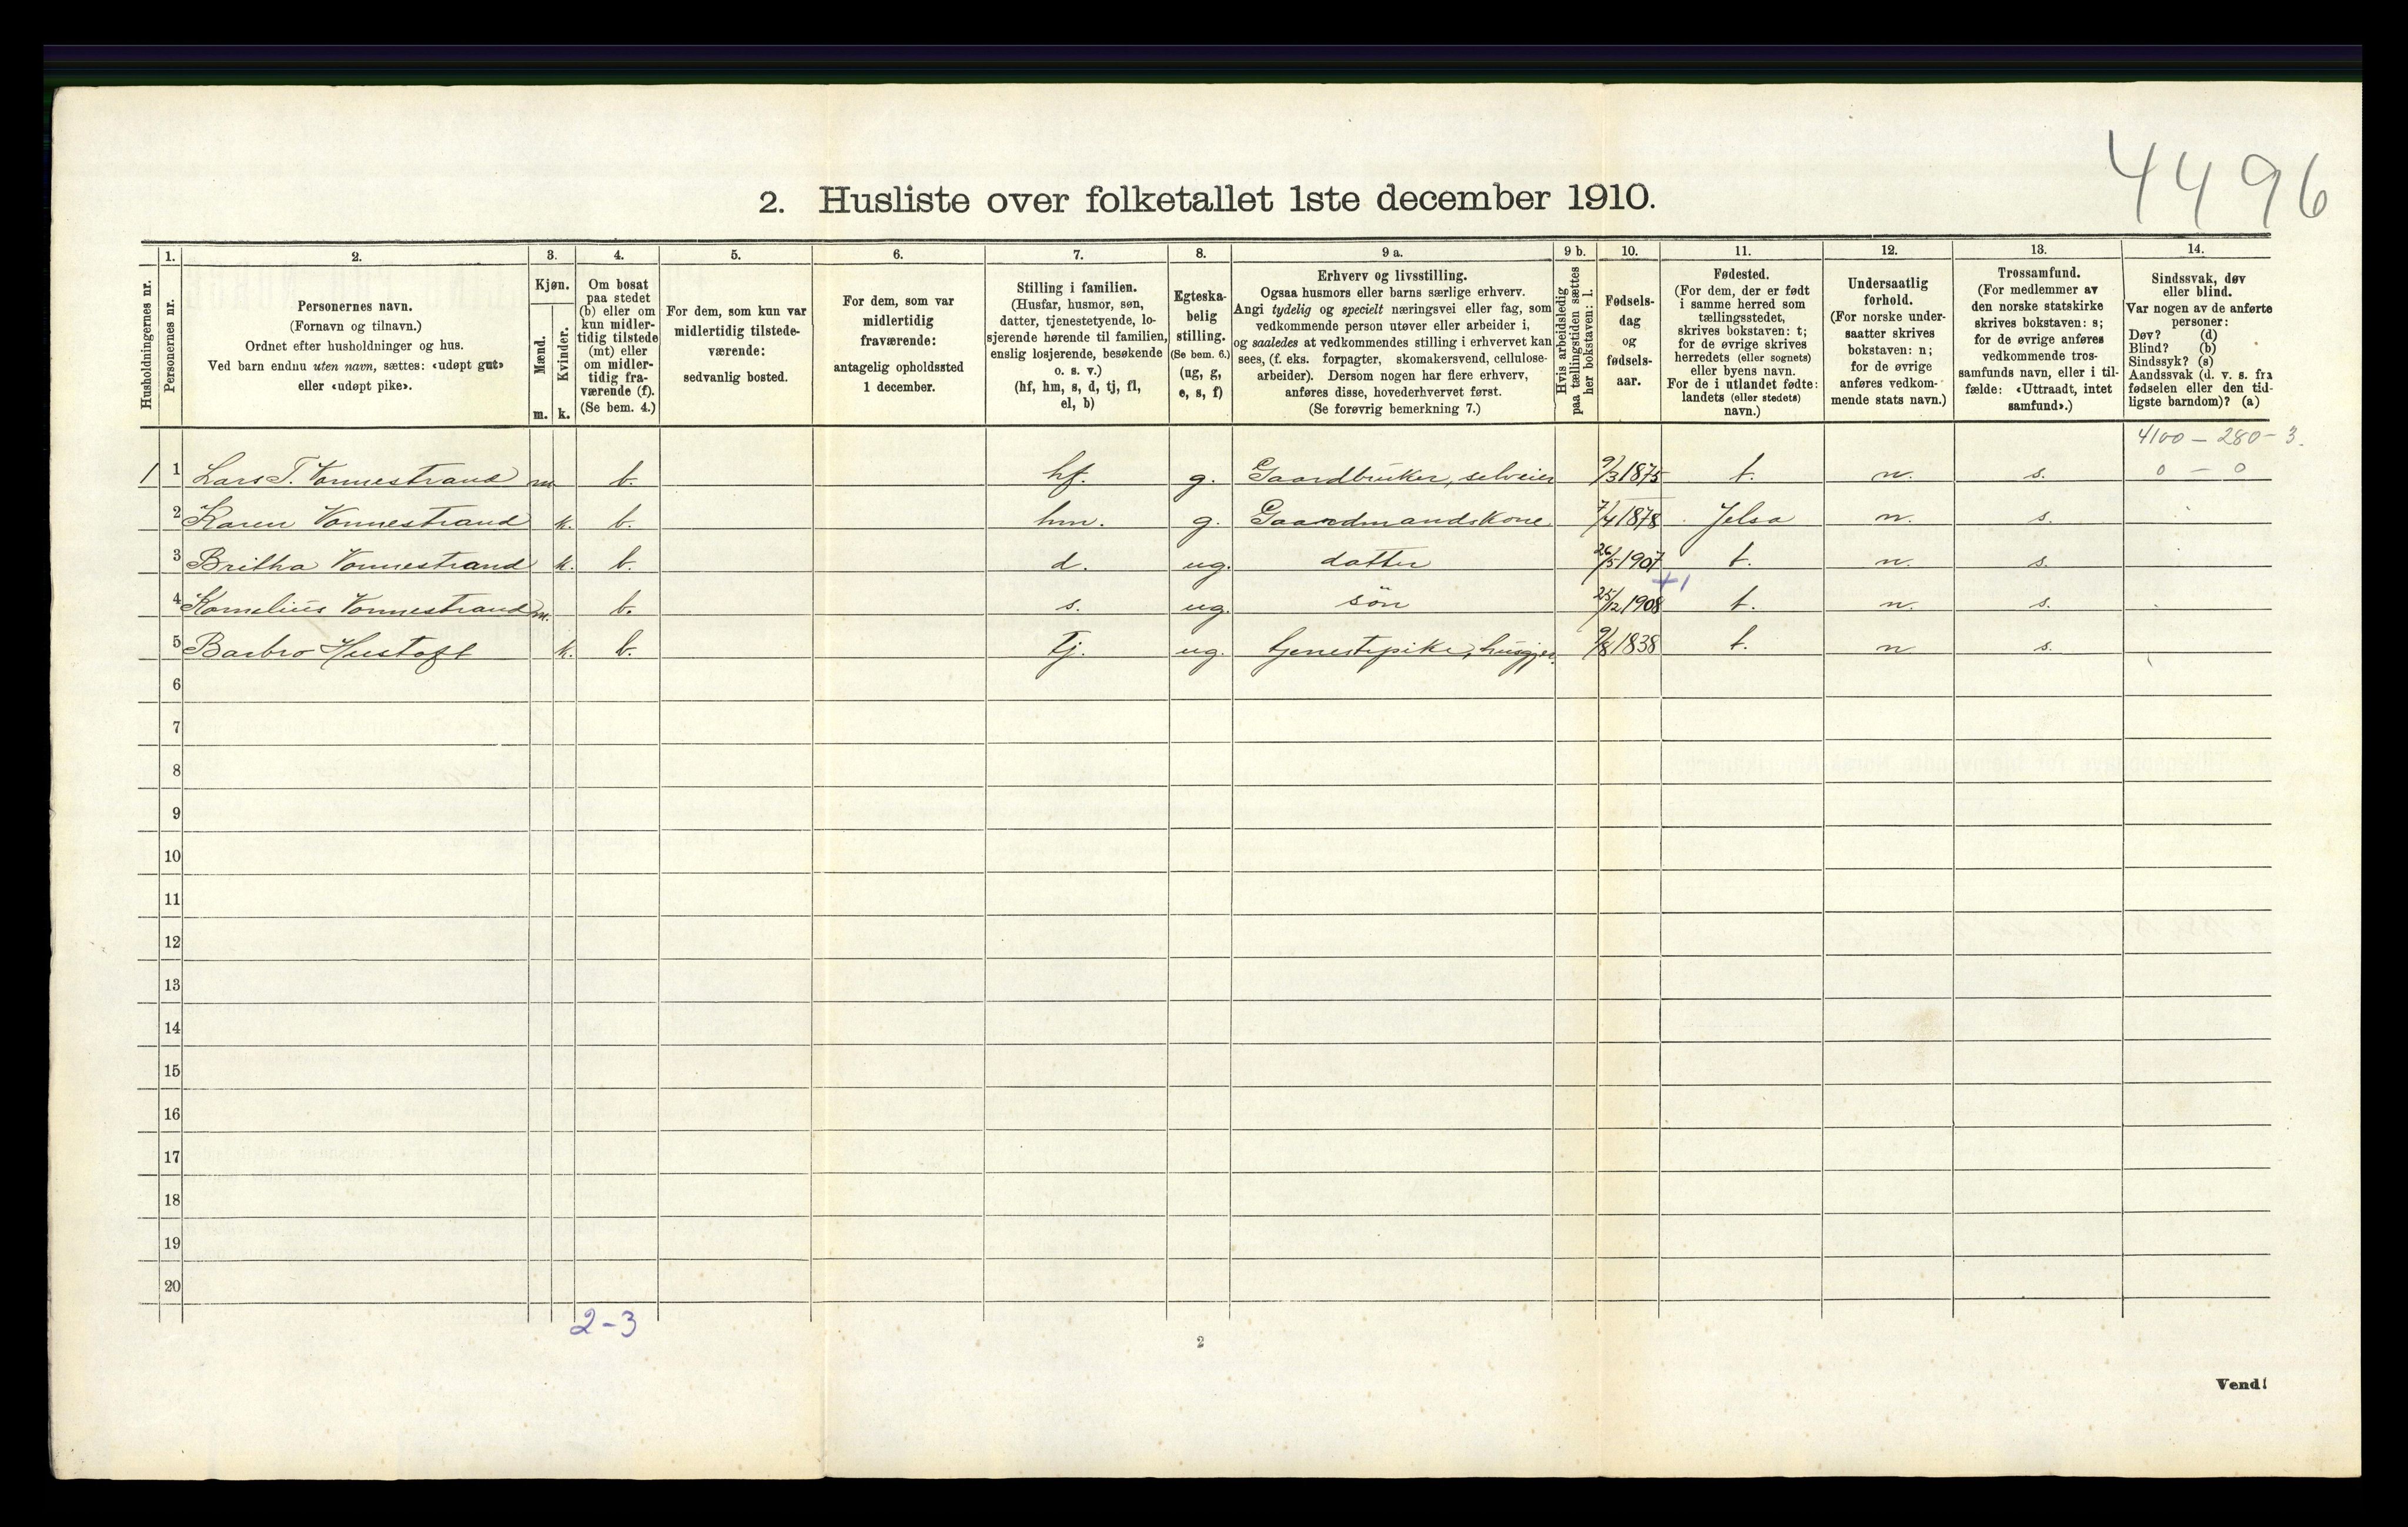 4496
2. Husliste over folketallet 1ste december 1910.
Husholdningernes nr.
1.
Personernes nr.
2.
Personernes navn.
(Fornavn og tilnavn.)
Ordnet efter husholdninger og hus.
Ved barn endnu uten navn, sættes: «udøpt gut»
eller «udøpt pike».
3.
Kjøn.
Mænd.
Kvinder.
m. k.
4.
Om bosat
paa stedet
(b) eller om
kun midler-
tidig tilstede
(mt) eller
om midler-
tidig fra-
værende (f).
(Se bem. 4.)
5.
For dem, som kun var
midlertidig tilstede-
værende:
sedvanlig bosted.
6.
For dem, som var
midlertidig
fraværende:
antagelig opholdssted
1 december.
7.
Stilling i familien.
(Husfar, husmor, søn,
datter, tjenestetyende, lo-
sjerende hørende til familien,
enslig losjerende, besøkende
o. s. v.)
(hf, hm, s, d, tj, fl,
el, b)
8.
Egteska-
belig
stilling.
(Se bem. 6.)
(ug, g,
e, s, f)
9 a.
Erhverv og livsstilling.
Ogsaa husmors eller barns særlige erhverv.
Angi tydelig og specielt næringsvei eller fag, som
vedkommende person utøver eller arbeider i,
og saaledes at vedkommendes stilling i erhvervet kan
sees, (f. eks. forpagter, skomakersvend, cellulose-
arbeider). Dersom nogen har flere erhverv,
anføres disse, hovederhvervet først.
(Se forøvrig bemerkning 7.)
9 b.
Hvis arbeidsledig
paa tællingstiden sættes
her bokstaven: l.
10.
Fødsels-
dag
og
fødsels-
aar.
11.
Fødested.
(For dem, der er født
i samme herred som
tællingsstedet,
skrives bokstaven: t;
for de øvrige skrives
herredets (eller sognets)
eller byens navn.
For de i utlandet fødte:
landets (eller stedets)
navn.)
12.
Undersaatlig
forhold.
(For norske under-
saatter skrives
bokstaven: n;
for de øvrige
anføres vedkom-
mende stats navn.)
13.
Trossamfund.
(For medlemmer av
den norske statskirke
skrives bokstaven: s;
for de øvrige anføres
vedkommende tros-
samfunds navn, eller i til-
fælde: «Uttraadt, intet
samfund».)
14.
Sindssvak, døv
eller blind.
Var nogen av de anførte
personer:
Døv? (d)
Blind? (b)
Sindssyk? (s)
Aandssvak (d. v. s. fra
fødselen eller den tid-
ligste barndom)? (a)
4100 - 280 - 3.
1 1 Lars T. Vonnestrand m. b. hf. g. Gaardbruker, selveier 9/3 1875 t. n. s. 0 - 0
2 Karen Vonnestrand k. b. hm. g. Gaardmandskone 7/4 1878 Jelsa n. s.
3 Britha Vonnestrand k. b. d. ug. datter 26/5 1907 t. n. s.
+1
4 Kornelius Vonnestrand m. b. s. ug. søn 25/12 1908 t. n. s.
5 Barbro Hustoft k. b. tj. ug. tjenestepike, husgjer. 9/8 1838 t. n. s.
6
7
8
9
10
11
12
13
14
15
16
17
18
19
20
2-3
2
Vend!